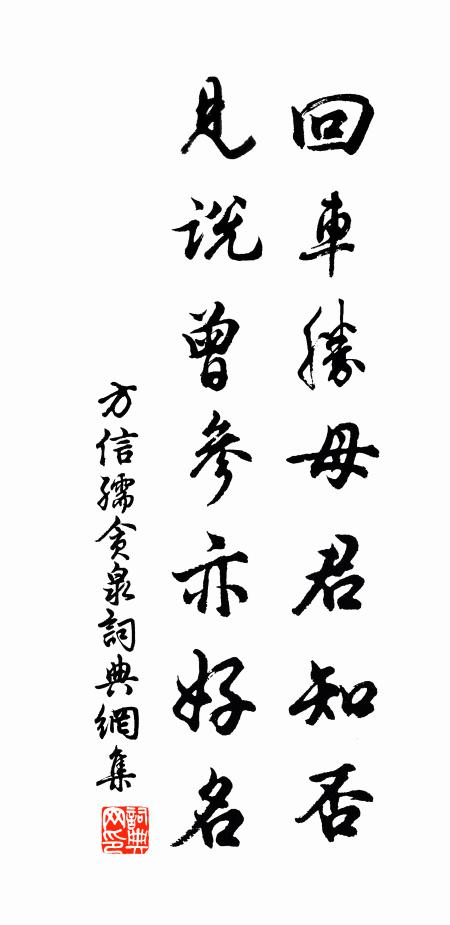 回車勝母君知否
見説曾參亦好名
方信孺貪泉詞典網集
詞典網印